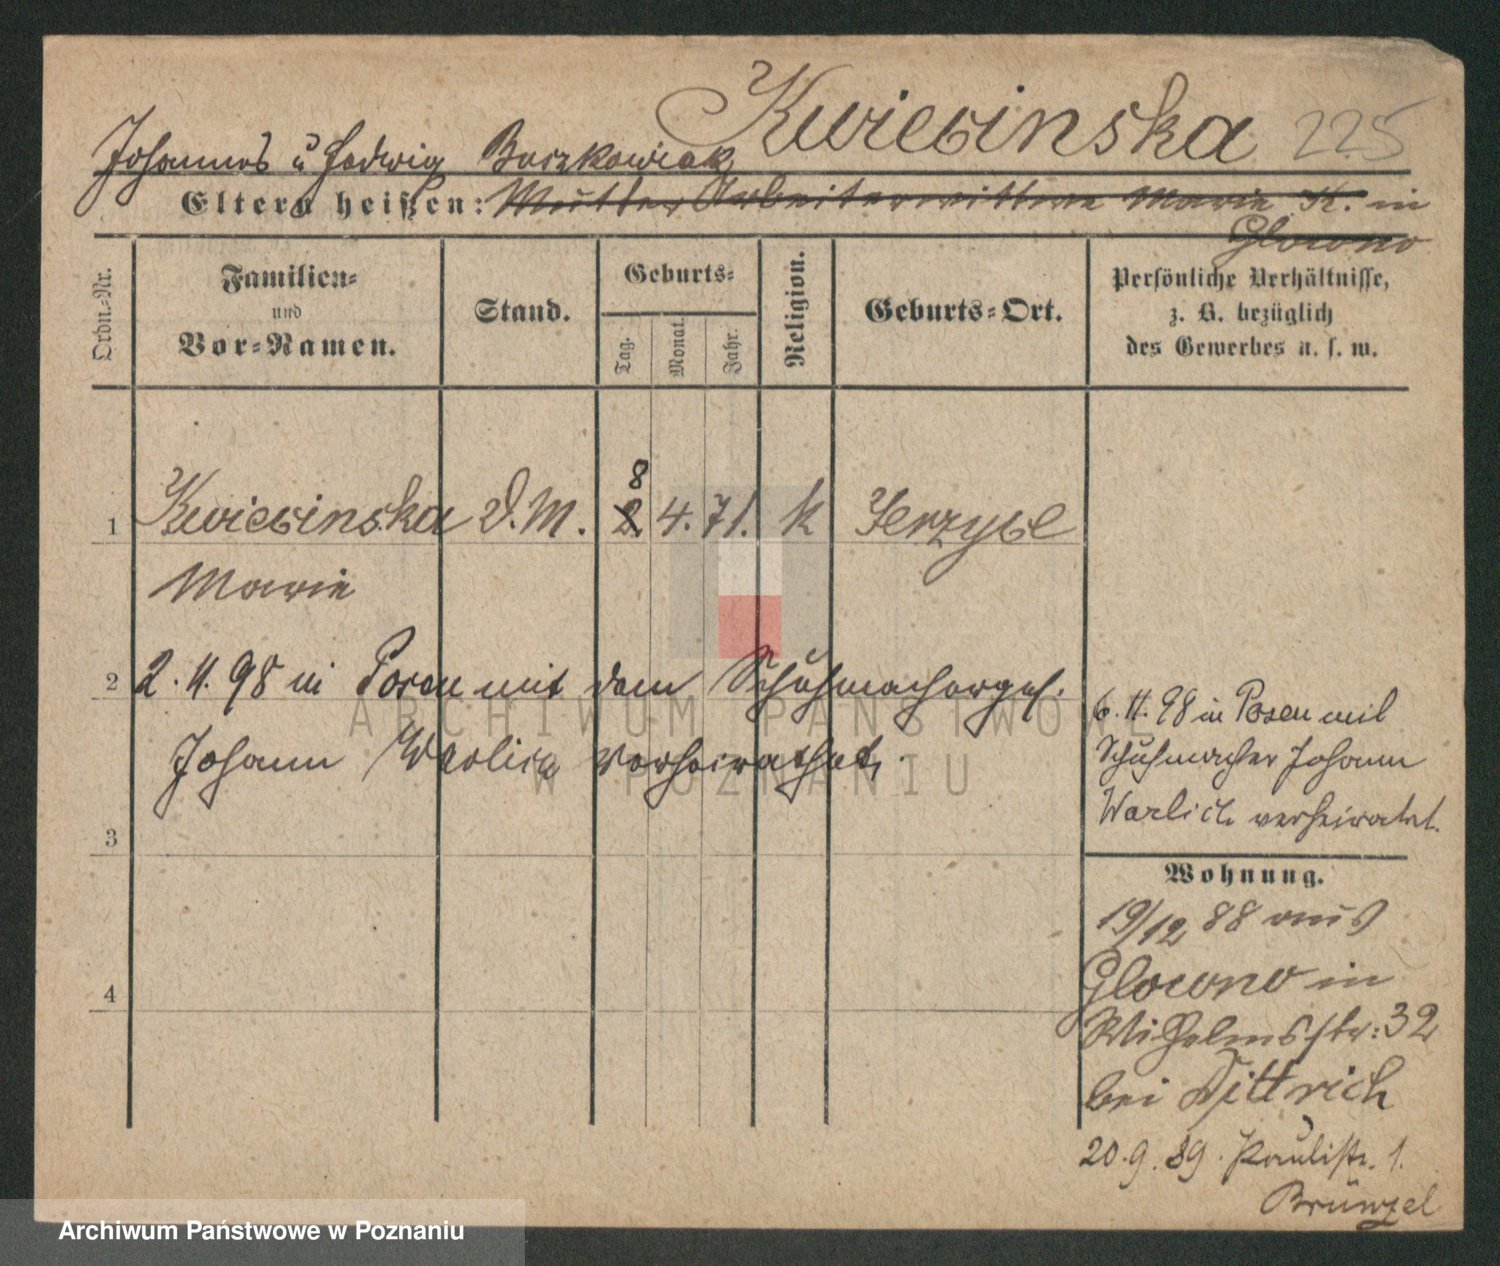 Kwiecinska 225
Johannes u Hedwig Buczkowiak
Eltern heißen: Mutter Arbeiterwittwe Marie K. in
Glowno
Ordn.-Nr.
Familien-
und
Vor-Namen.
Stand.
Geburts-
Tag.
Monat.
Jahr.
Religion.
Geburts-Ort.
Persönliche Verhältnisse,
z. B. bezüglich
des Gewerbes u. s. w.
8
1 Kwiecinska D.M. 2. 4. 71. k Jerzyce
Marie
2 2.4.98 in Posen mit dem Schuhmacherges.
Johann Warlich verheirathet.
3
4
6.4.98 in Posen mit
Schuhmacher Johann
Warlich verheiratet.
Wohnung.
19/12 88 aus
Glowno in
Wilhelmsstr: 32
bei Dittrich
20.9.89. Paulistr. 1.
Brünzel
ARCHIWUM PAŃSTWOWE
W POZNANIU
Archiwum Państwowe w Poznaniu